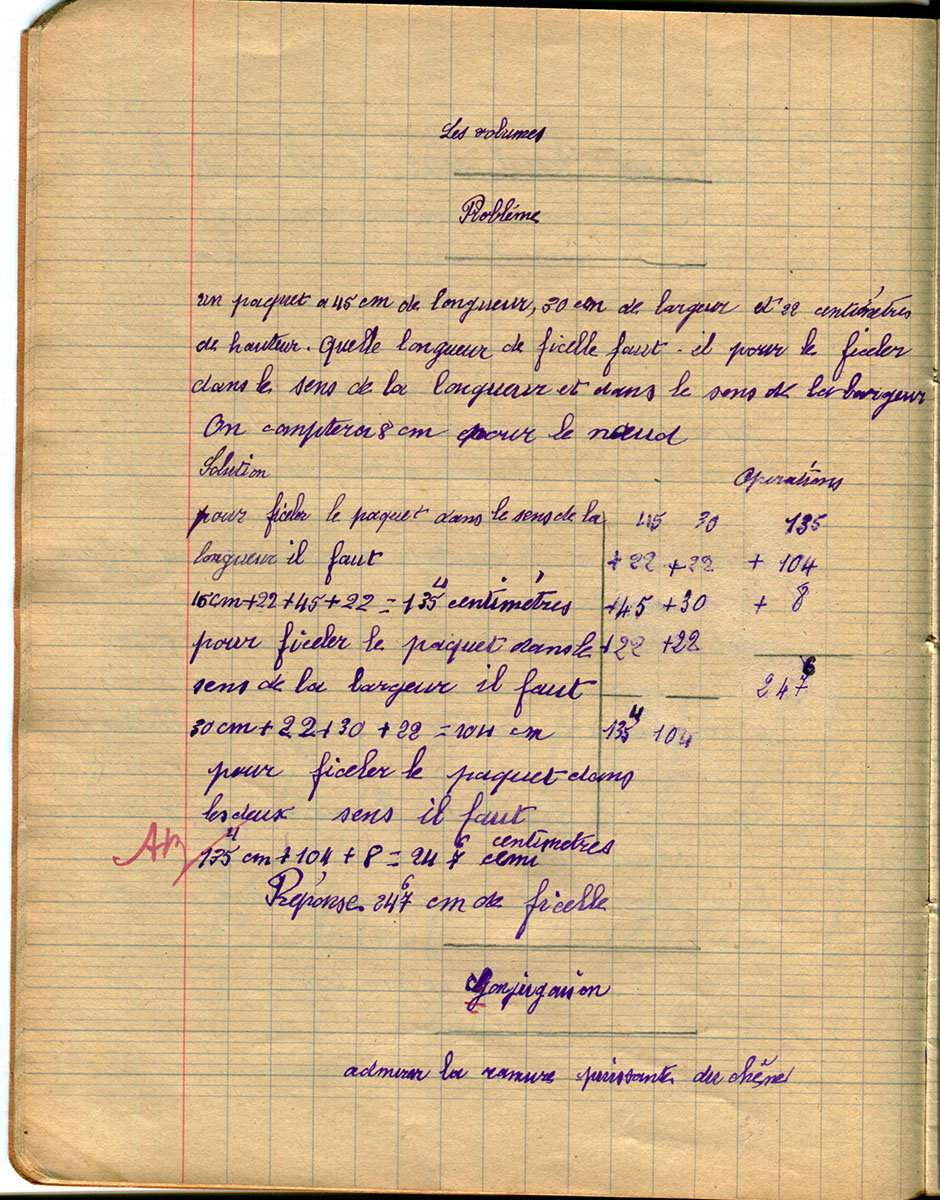 Les volumes
Problème
un paquet a 45 cm de longueur, 30 cm de largeur et 22 centimètres
de hauteur. Quelle longueur de ficelle faut-il pour le ficeler
dans le sens de la longueur et dans le sens de la largeur
On comptera 8 cm pour le nœud
Solution
Opérations
pour ficeler le paquet dans le sens de la
longueur il faut
45cm+22+45+22=135 4 centimètres
pour ficeler le paquet dans le
sens de la largeur il faut
30cm+22+30+22=104 cm
pour ficeler le paquet dans
les deux sens il faut
135 4 cm+104+8=246 centimetres
Réponse 247 6 cm de ficelle
45 30 135
+22 +22 +104
+45 +30 +8
+22 +22
247 6
135 4 104
AB
Conjugaison
admirer la ramure puissante du chêne